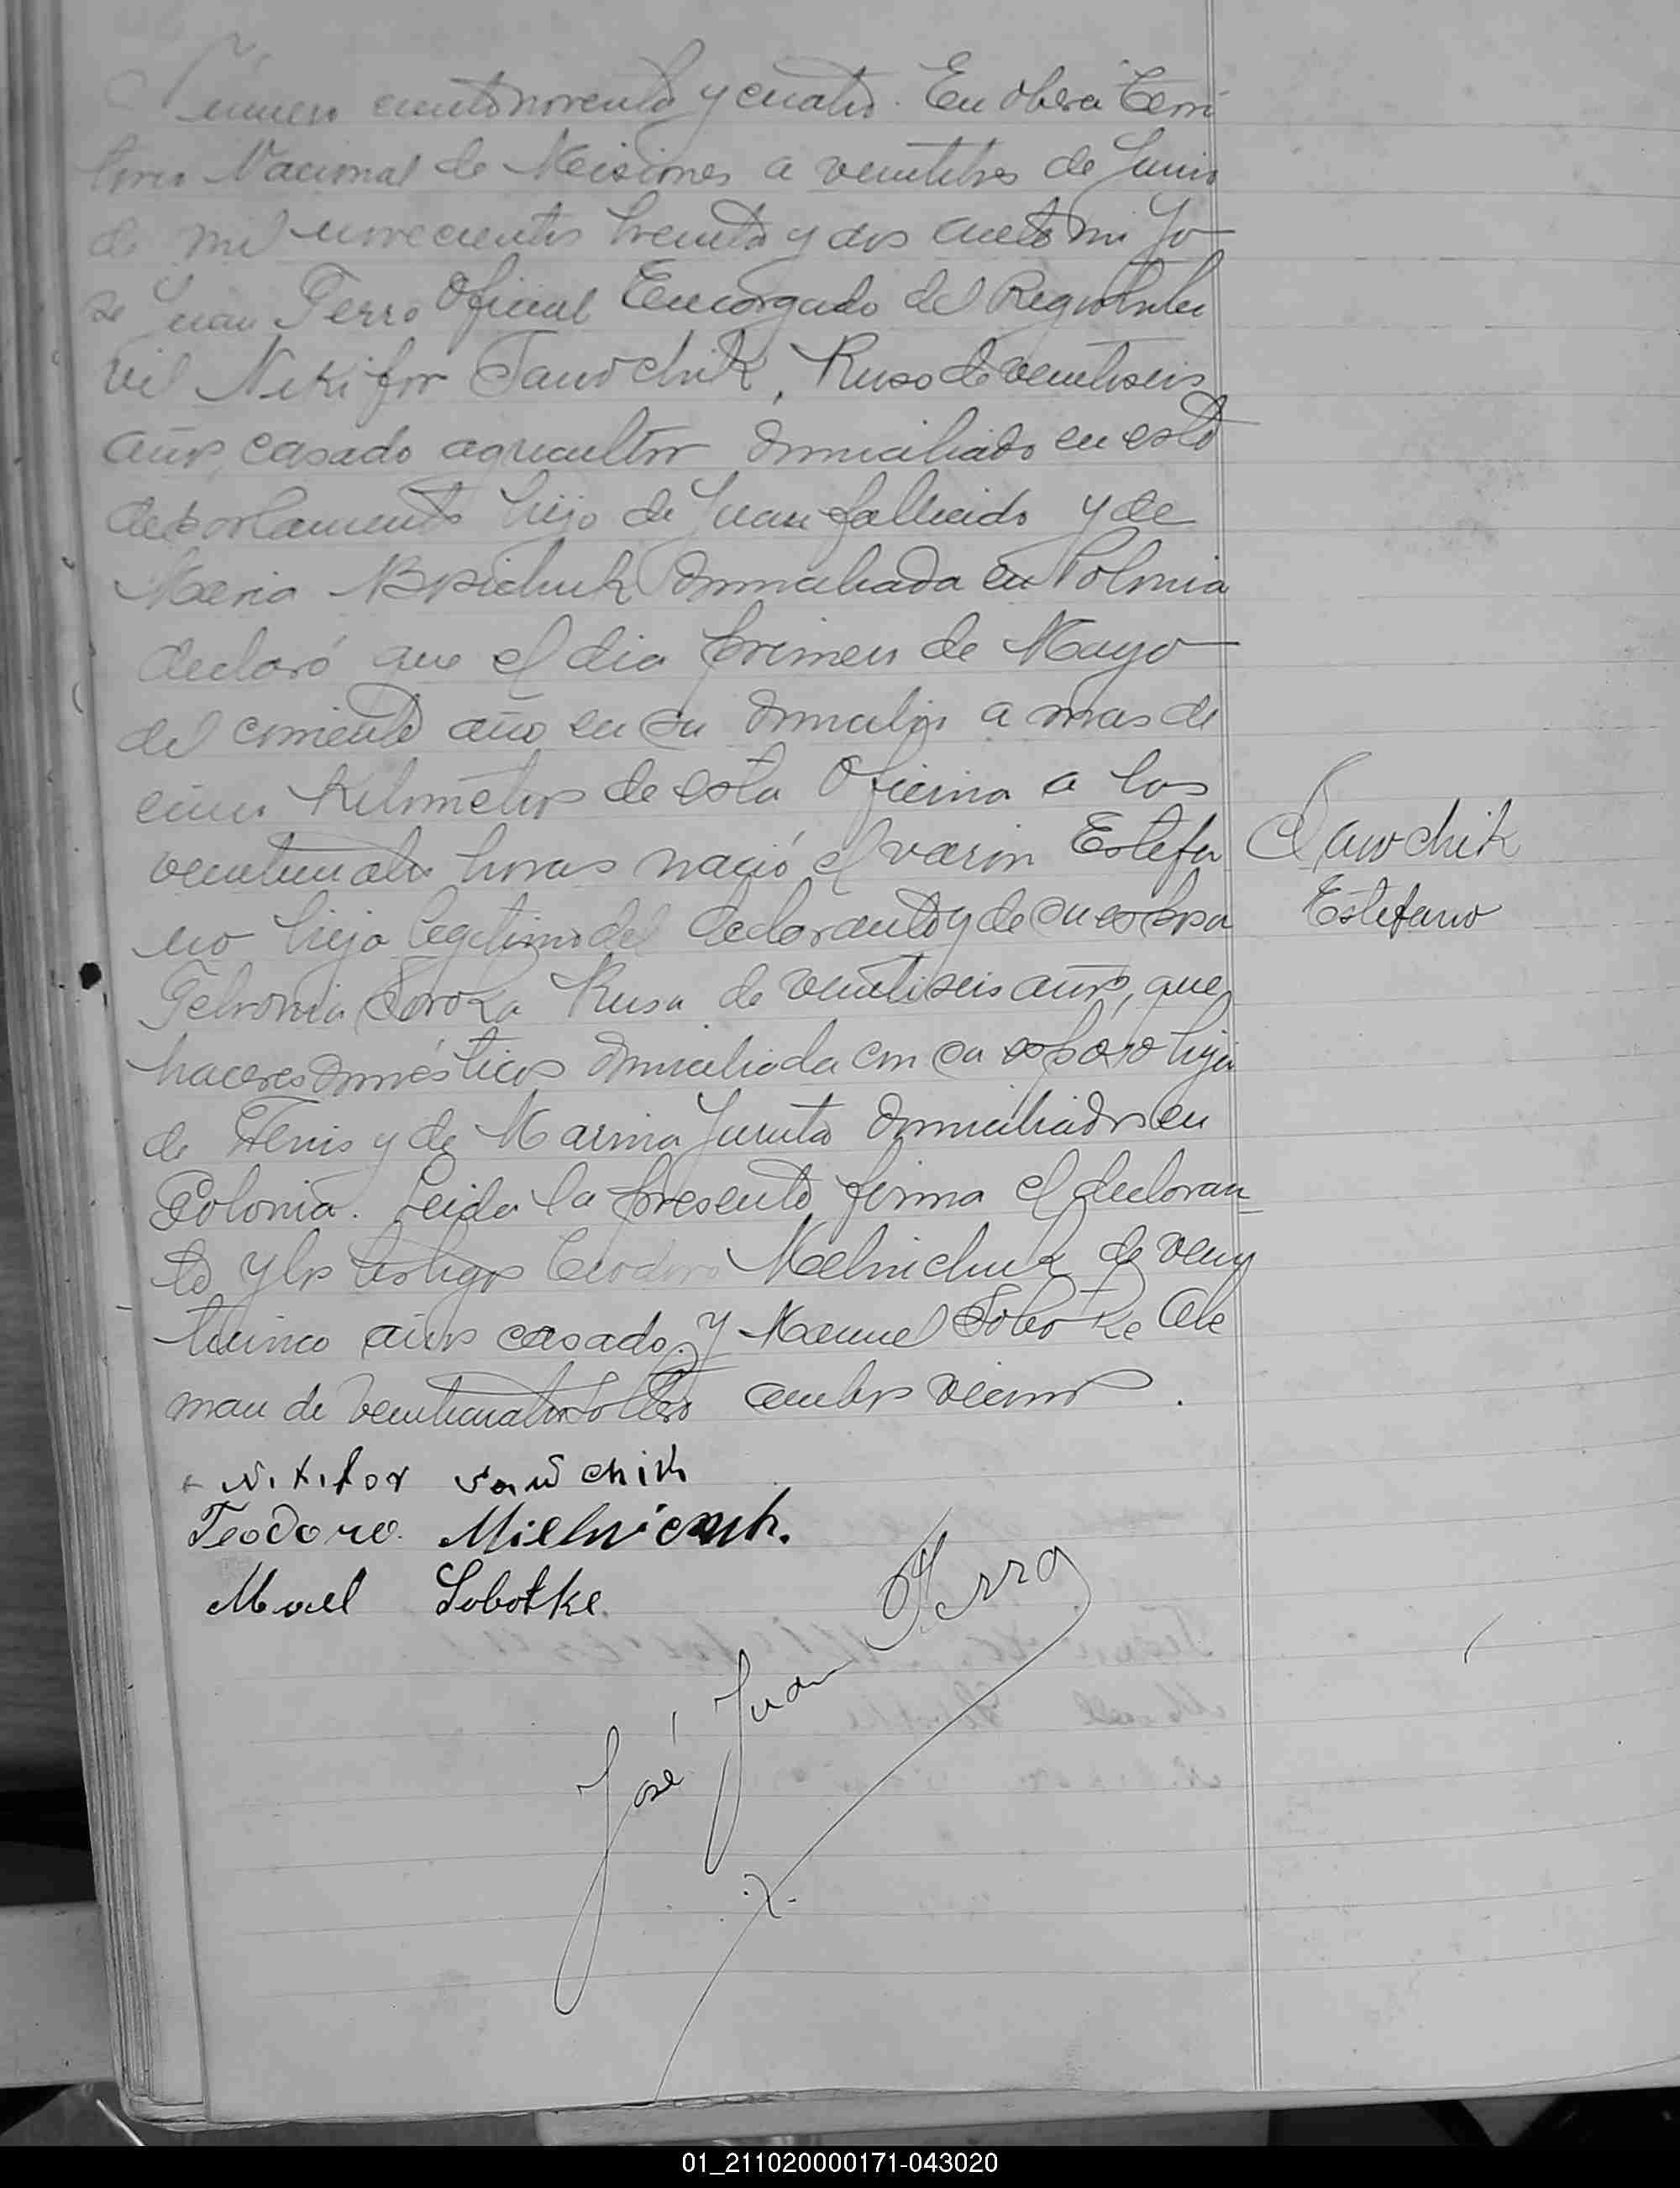 Número ciento noventa y cuatro. En Oberá Terri
torio Nacional de Misiones a veintitres de Junio
de mil novecientos treinta y dos ante mi Jo-
se Juan Ferro Oficial Encargado del Registro Ci
vil Nikifor Sawchik, Ruso de veintiseis
años, casado agricultor domiciliado en este
departamento hijo de Juan fallecido y de
Maria domiciliada en Polonia
declaró que el dia primero de Mayo
del corriente año en su domicilio a mas de
cinco Kilometros de esta Oficina a las
veinticuatro horas nació el varon Estefa
no hijo legitimo del declarante y de su esposa
Fehronia Soroka Rusa de veintiseis años, que
haceres domésticos domiciliada con su esposo hija
de Denis y de Marina Juruta domiciliados en
Polonia. Leida la presente firma el declaran
te y los testigos Teodoro Melnichuk de vein
ticinco años casado y Manuel Sobotke Ale
man de veinticuatro soltero ambos vecinos.
Sawchik
Estefano
Nikifor Sawchik
Teodoro. Mielniczuk.
Mauel Sobotke
José Juan Ferro
01_211020000171-043020